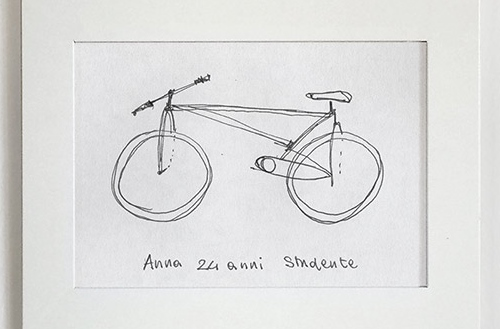 Anna 24 anni Studente